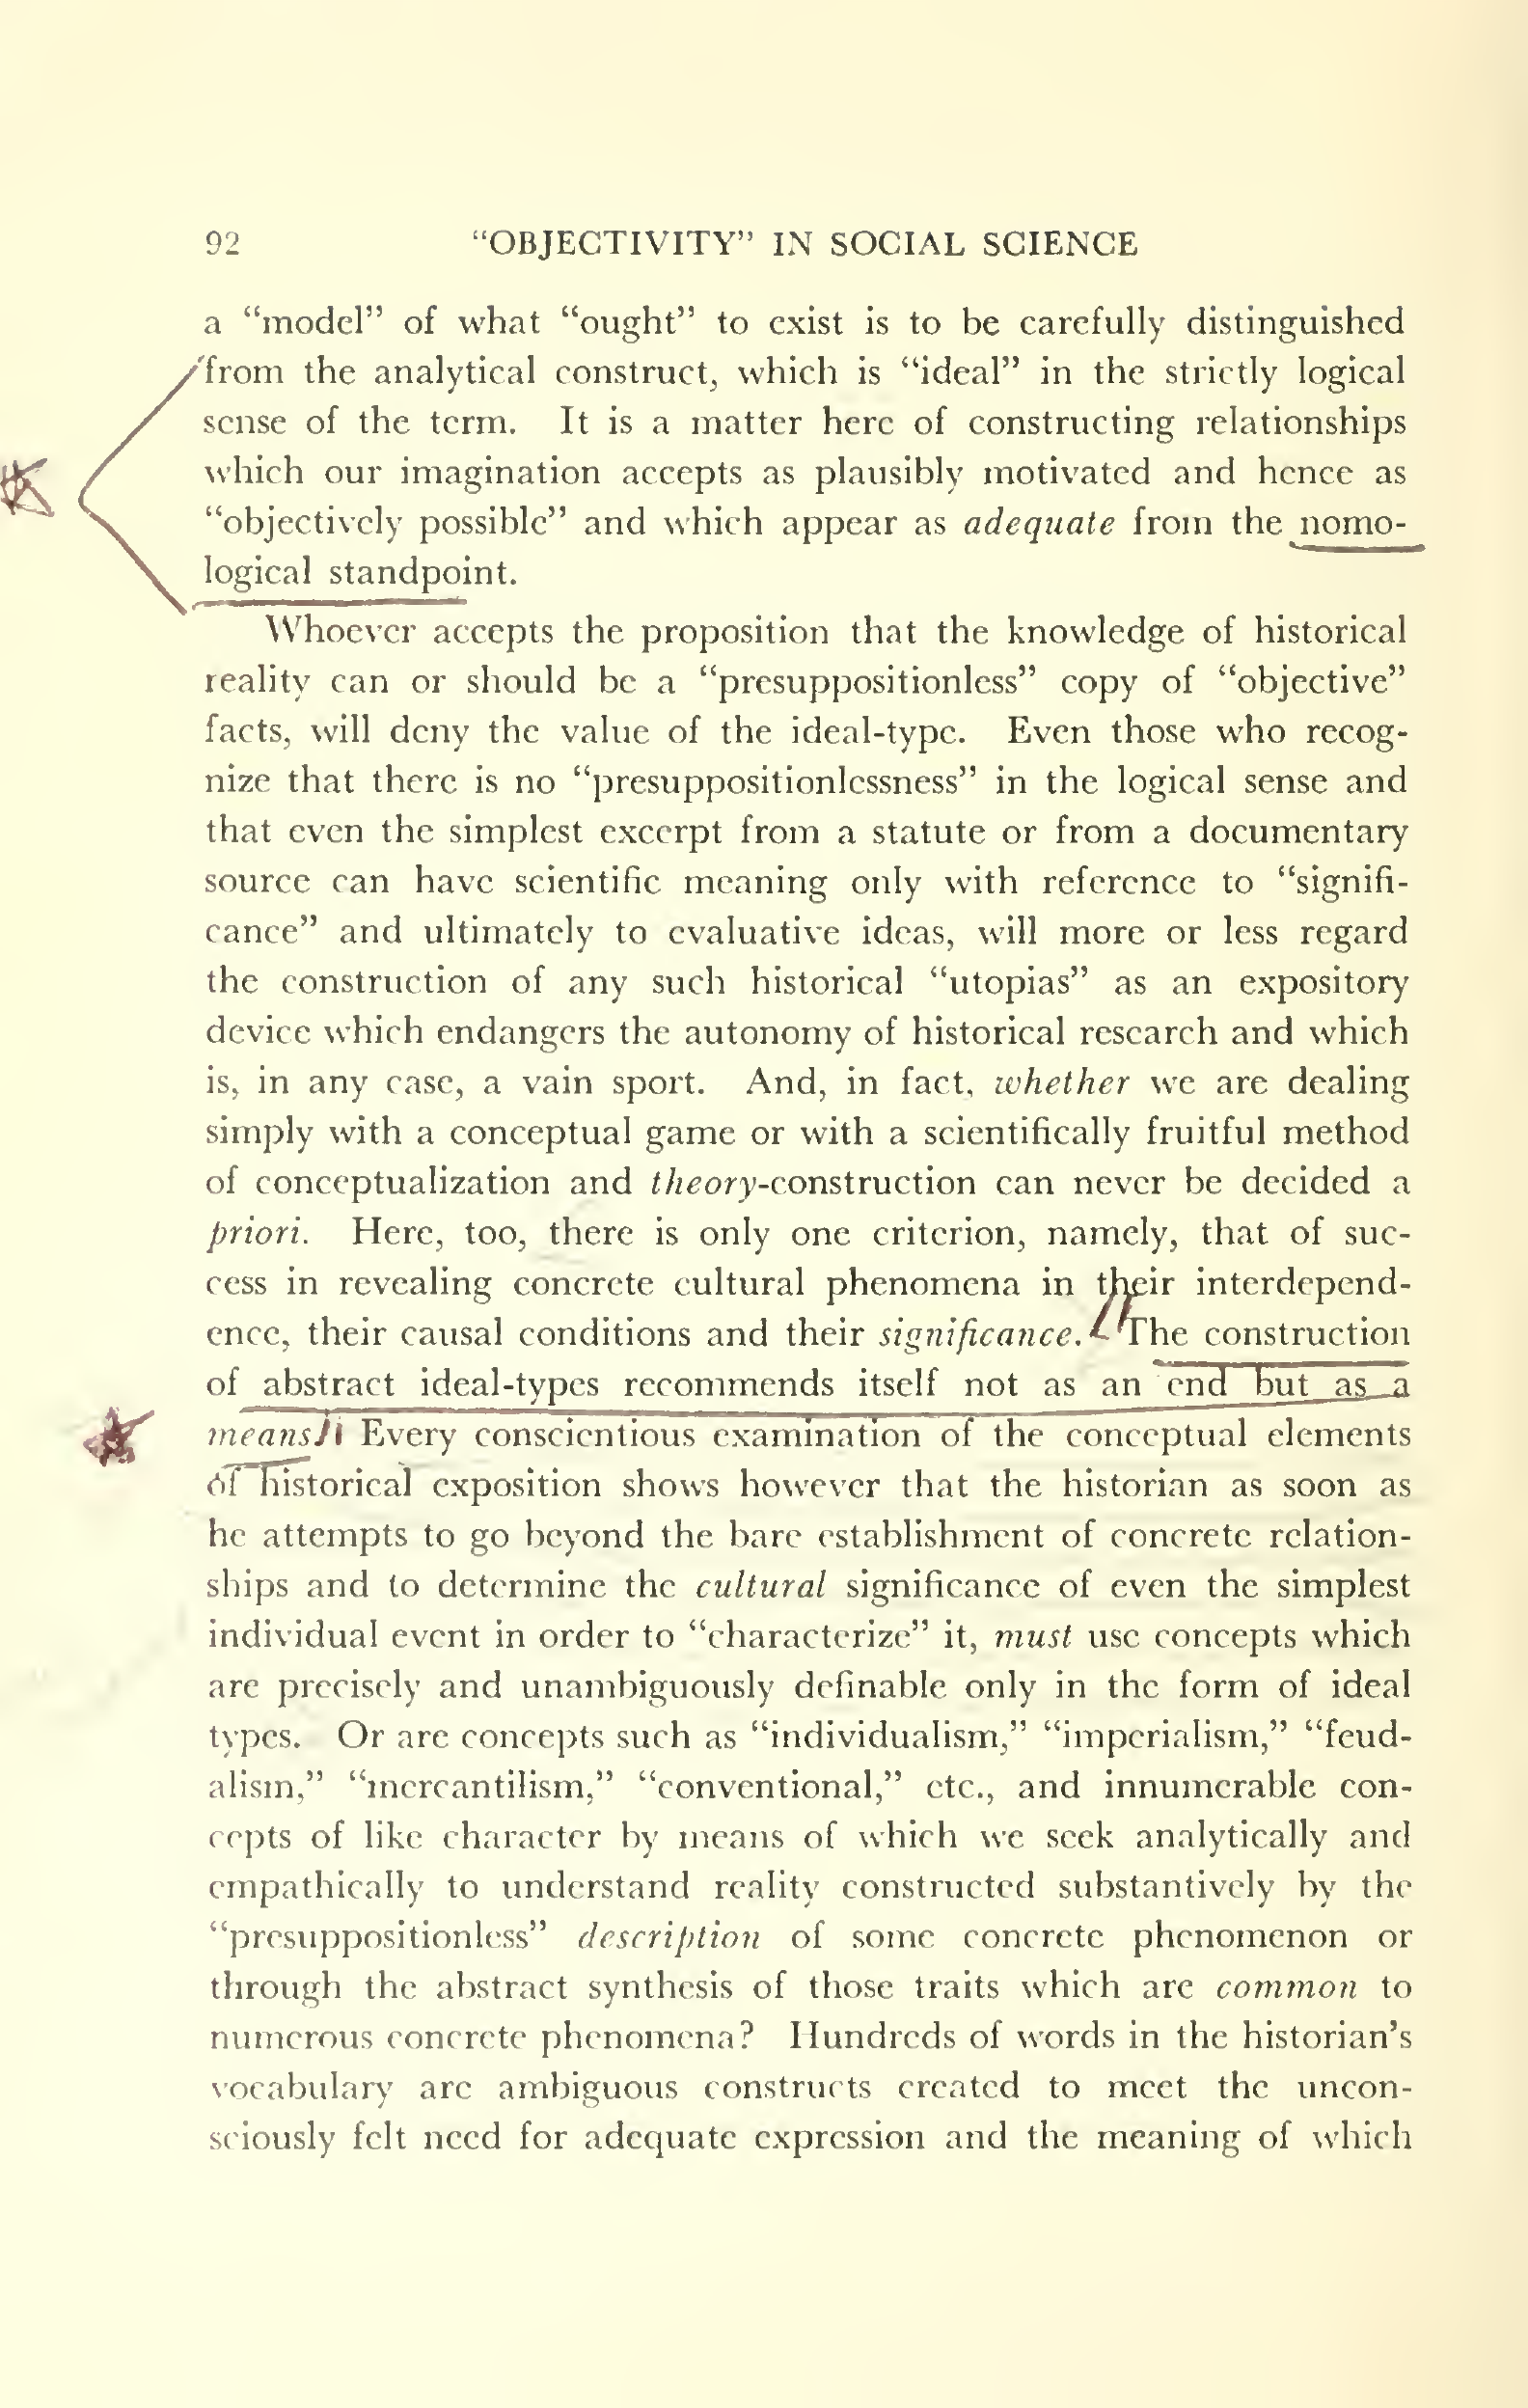 92 "OBJECTIVITY" IN SOCIAL SCIENCE
a "model" of what "ought" to exist is to be carefully distinguished
from the analytical construct, which is "ideal" in the strictly logical
sense of the term. It is a matter here of constructing relationships
which our imagination accepts as plausibly motivated and hence as
"objectively possible" and which appear as adequate from the nomo-
logical standpoint.
Whoever accepts the proposition that the knowledge of historical
reality can or should be a "presuppositionless" copy of "objective"
facts, will deny the value of the ideal-type. Even those who recog-
nize that there is no "presuppositionlessness" in the logical sense and
that even the simplest excerpt from a statute or from a documentary
source can have scientific meaning only with reference to "signifi-
cance" and ultimately to evaluative ideas, will more or less regard
the construction of any such historical "utopias" as an expository
device which endangers the autonomy of historical research and which
is, in any case, a vain sport. And, in fact, whether we are dealing
simply with a conceptual game or with a scientifically fruitful method
of conceptualization and theory-construction can never be decided a
priori. Here, too, there is only one criterion, namely, that of suc-
cess in revealing concrete cultural phenomena in their interdepend-
ence, their causal conditions and their significance. The construction
of abstract ideal-types recommends itself not as an end but as a
means. Every conscientious examination of the conceptual elements
of historical exposition shows however that the historian as soon as
he attempts to go beyond the bare establishment of concrete relation-
ships and to determine the cultural significance of even the simplest
individual event in order to "characterize" it, must use concepts which
are precisely and unambiguously definable only in the form of ideal
types. Or are concepts such as "individualism," "imperialism," "feud-
alism," "mercantilism," "conventional," etc., and innumerable con-
cepts of like character by means of which we seek analytically and
empathically to understand reality constructed substantively by the
"presuppositionless" description of some concrete phenomenon or
through the abstract synthesis of those traits which are common to
numerous concrete phenomena? Hundreds of words in the historian's
vocabulary are ambiguous constructs created to meet the uncon-
sciously felt need for adequate expression and the meaning of which